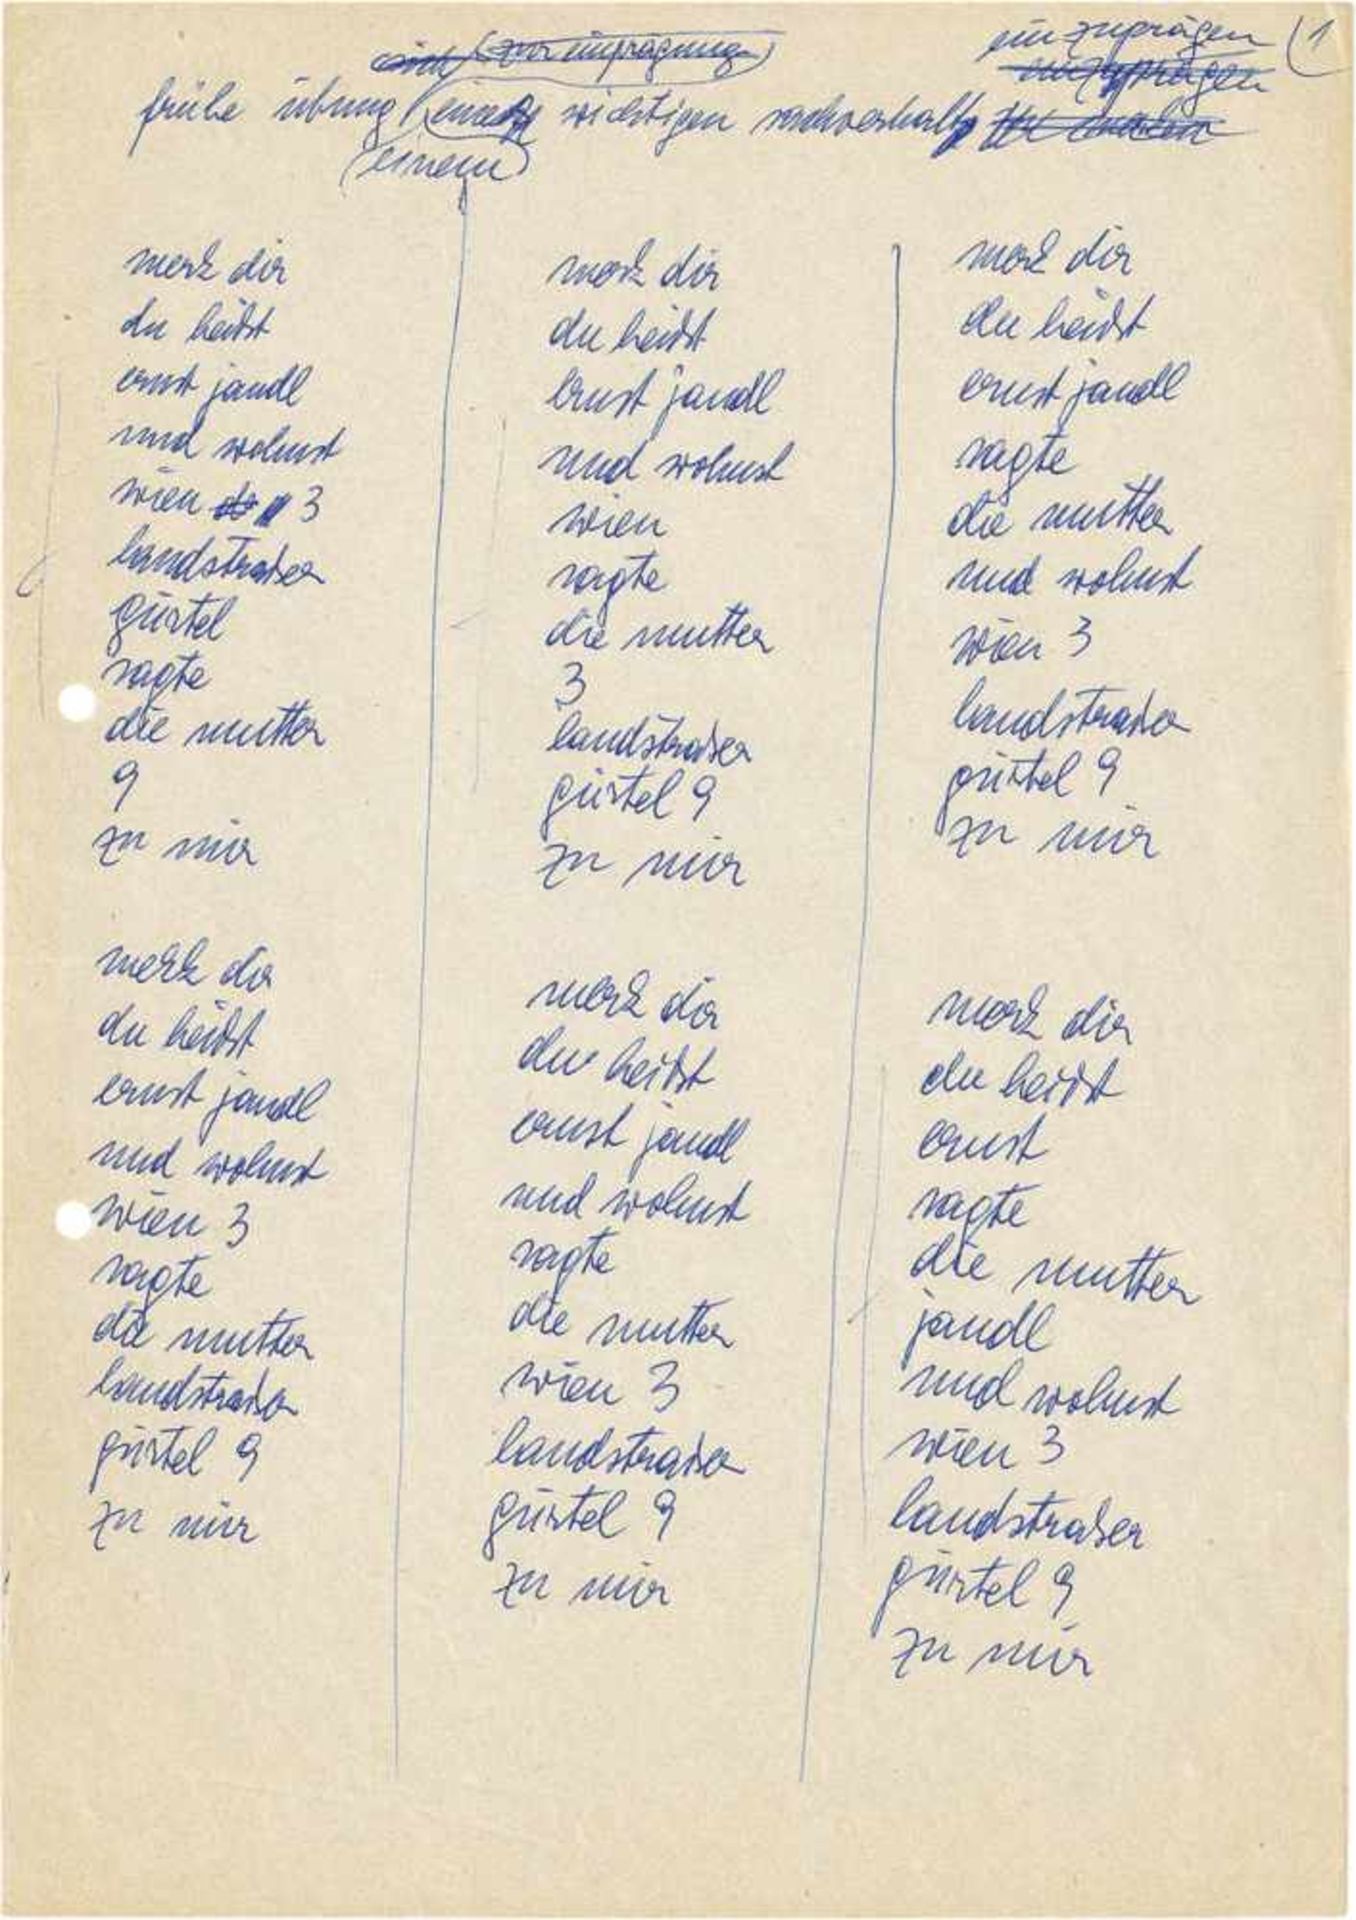 (zur einprägung)
einzuprägen
(1
einzuprägen
frühe übung wichtigen sachverhalt
(einem)
merk dir
du heißt
ernst jandl
und wohnst
wien 3
landstraßer
gürtel
sagte
die mutter
9
zu mir
merk dir
du heißt
ernst jandl
und wohnst
wien 3
sagte
die mutter
landstraßer
gürtel 9
zu mir
merk dir
du heißt
ernst jandl
und wohnst
wien
sagte
die mutter
3
landstraßer
gürtel 9
zu mir
merk dir
du heißt
ernst jandl
und wohnst
sagte
die mutter
wien 3
landstraßer
gürtel 9
zu mir
merk dir
du heißt
ernst jandl
sagte
die mutter
und wohnst
wien 3
landstraßer
gürtel 9
zu mir
merk dir
du heißt
ernst
sagte
die mutter
jandl
und wohnst
wien 3
landstraßer
gürtel 9
zu mir